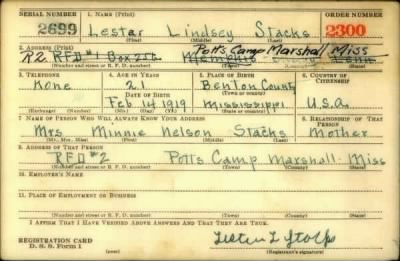 SERIAL NUMBER 1. NAME (Print) ORDER NUMBER
2699 Lestar Lindsey Stacks 2300
(First) (Middle) (Last)
2. ADDRESS (Print) Potts Camp Marshall Miss
R2 RFD #1 Box 256 Memphis Tenn
(Number and street or R. F. D. number) (Town) (County) (State)
3. TELEPHONE 4. AGE IN YEARS 5. PLACE OF BIRTH 6. COUNTRY OF CITIZENSHIP
None 21 Benton County
DATE OF BIRTH (Town or county)
Feb 14 1919 Mississippi U.S.a.
(Exchange) (Number) (Mo.) (Day) (Yr.) (State or country)
7. NAME OF PERSON WHO WILL ALWAYS KNOW YOUR ADDRESS 8. RELATIONSHIP OF THAT PERSON
Mrs Minnie Nelson Stacks Mother
(Mr., Mrs., Miss) (First) (Middle) (Last)
9. ADDRESS OF THAT PERSON
RFD #2 Potts Camp Marshall Miss
(Number and street or R. F. D. number) (Town) (County) (State)
10. EMPLOYER'S NAME
11. PLACE OF EMPLOYMENT OR BUSINESS
(Number and street or R. F. D. number) (Town) (County) (State)
I AFFIRM THAT I HAVE VERIFIED ABOVE ANSWERS AND THAT THEY ARE TRUE.
REGISTRATION CARD
D. S. S. Form 1 (over) (Registrant's signature)